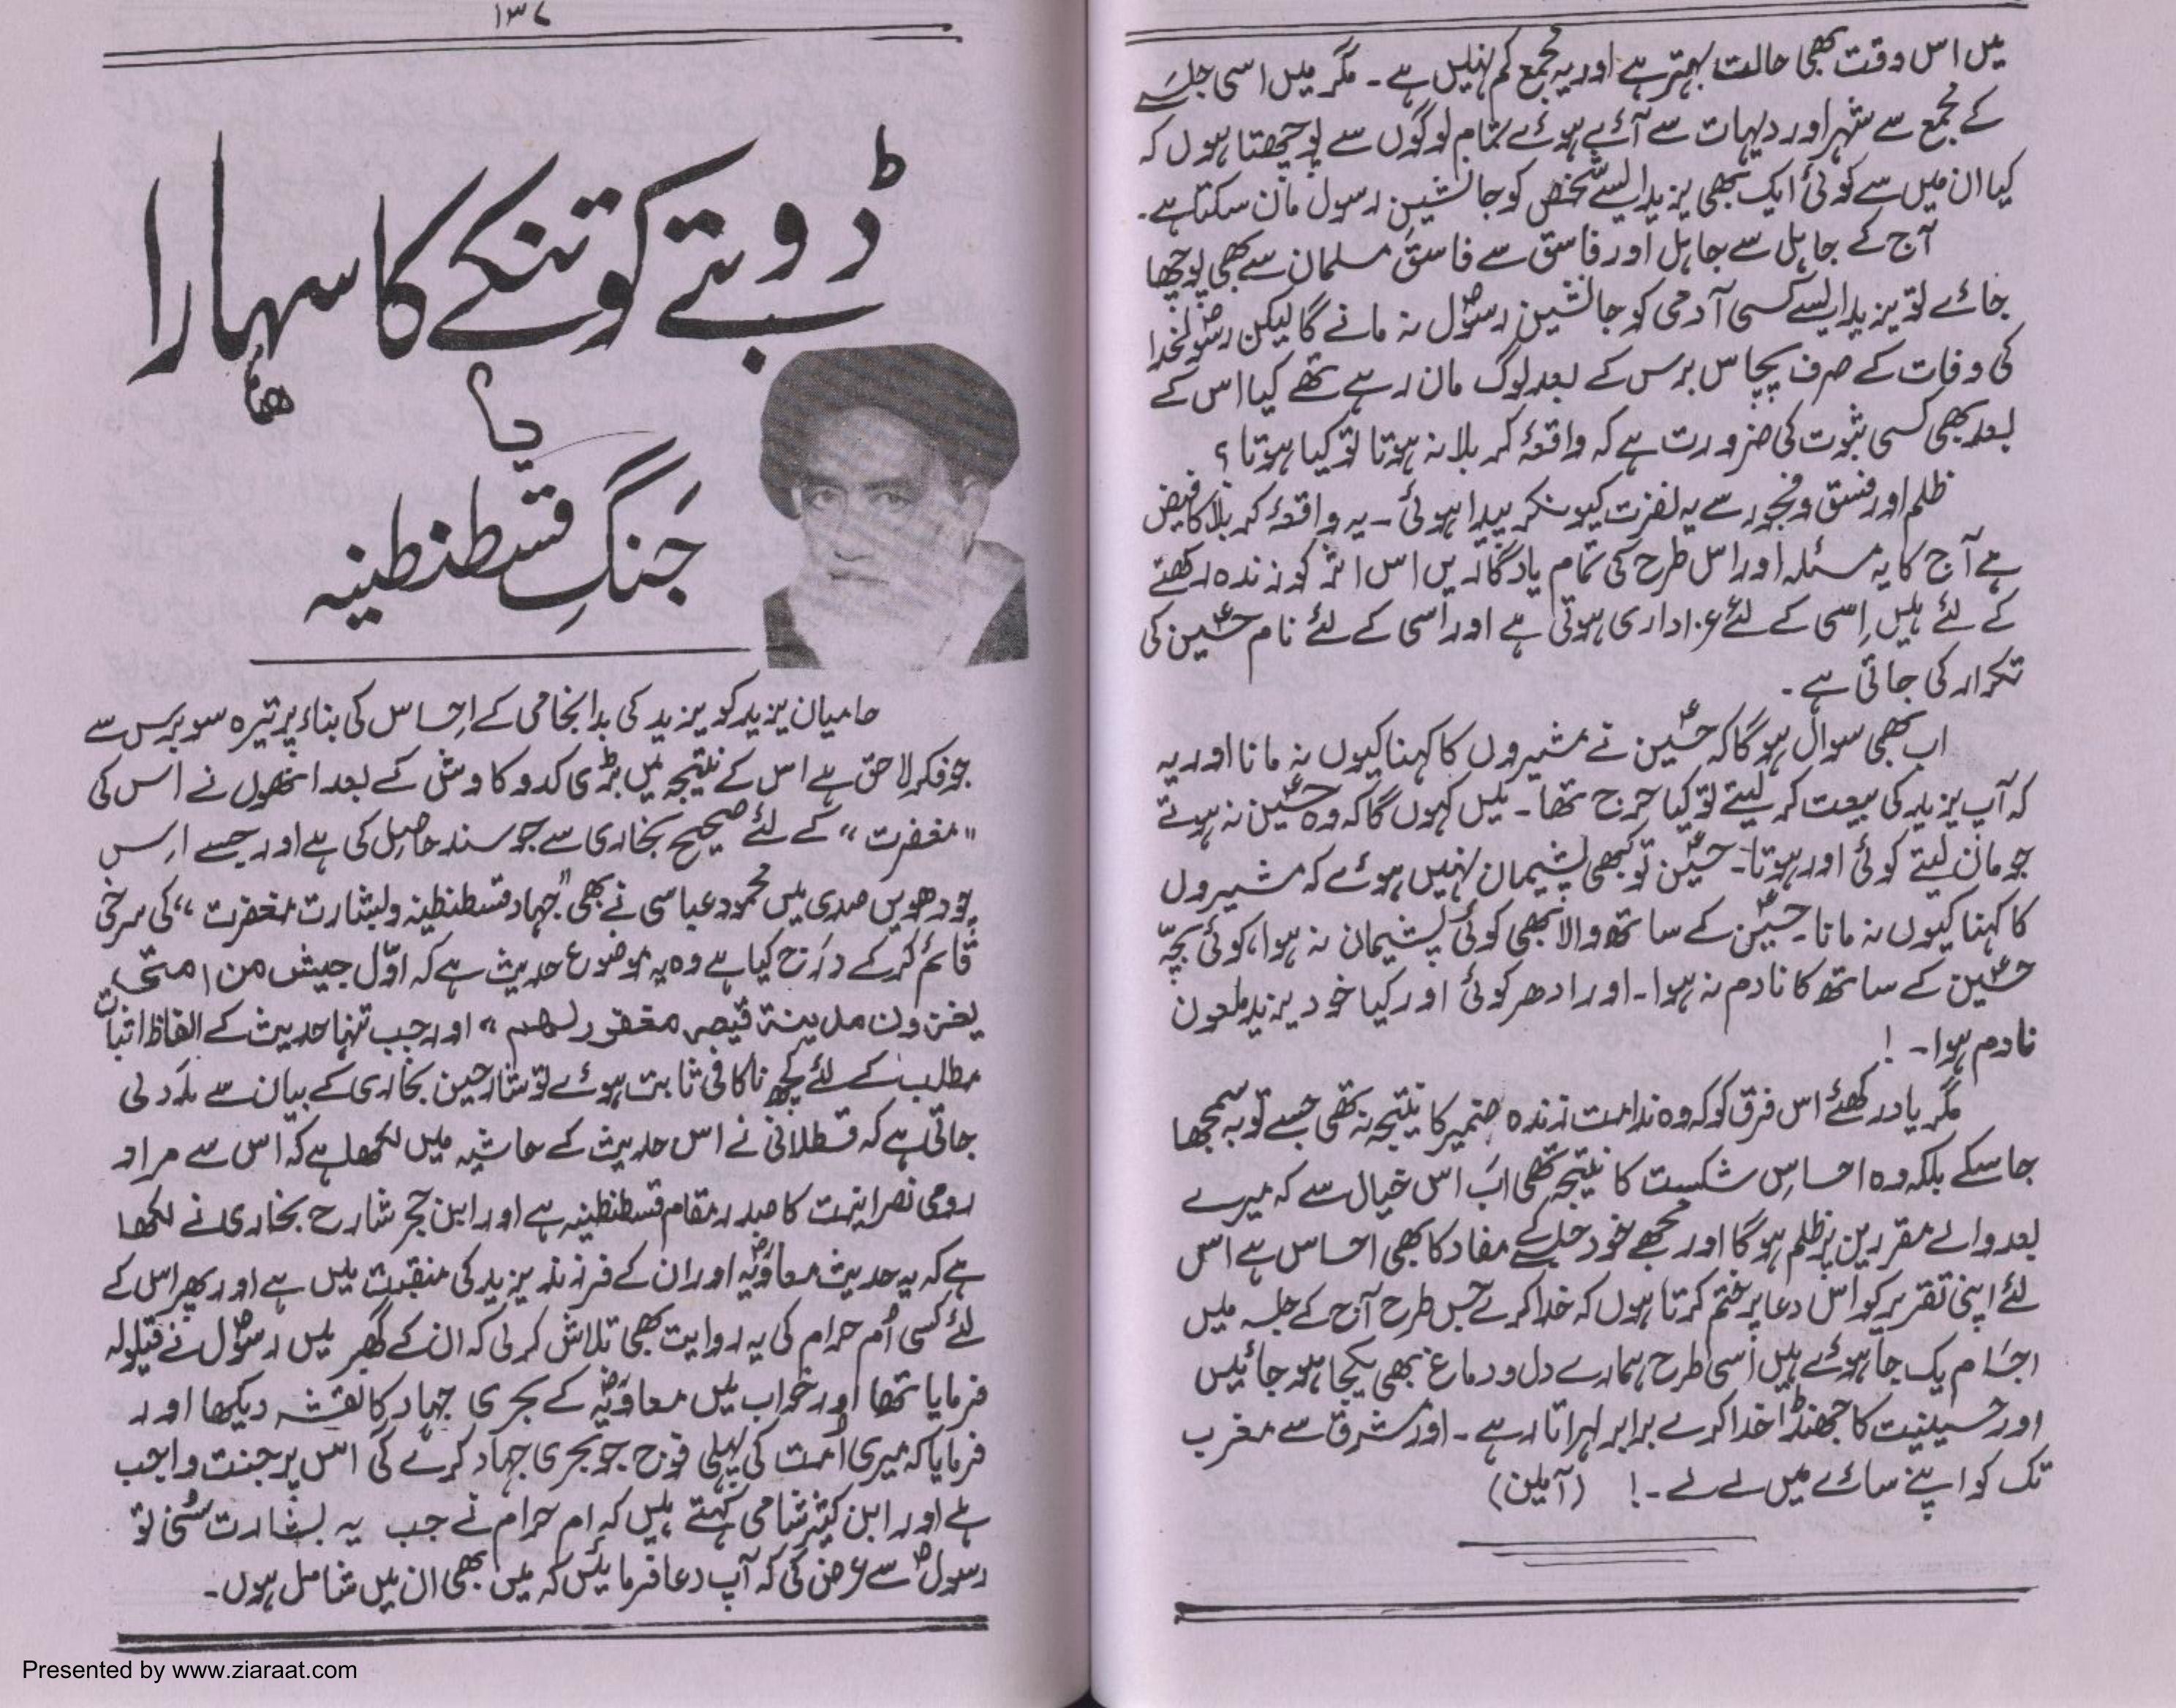 میں اس وقت بھی حالت بہتر ہے اور یہ مجمع کم نہیں ہے ۔ مگر میں اسی جلسے
کے مجمع سے شہر اور دیہات سے آئے ہوئے تمام لوگوں سے پوچھتا ہوں کہ
کیا ان میں سے کوئی ایک بھی یزید ایسے شخص کو جانشینِ رسول مان سکتا ہے ۔
آج کے جاہل سے جاہل اور فاسق سے فاسق مسلمان سے بھی پوچھا
جائے تو یزید ایسے کسی آدمی کو جانشین رسولؐ نہ مانے گا لیکن رسولؐخدا
کی وفات کے صرف پچاس برس کے بعد لوگ مان رہے تھے کیا اس کے
بعد بھی کسی ثبوت کی ضرورت ہے کہ واقعۂ کربلا نہ ہوتا تو کیا ہوتا ؟
ظلم اور فسق و فجور سے یہ نفرت کیونکر پیدا ہوئی ۔ یہ واقعۂ کربلا کا فیض
ہے آج کا یہ مسئلہ اور اس طرح کی تمام یادگاریں اس اثر کو زندہ رکھنے
کے لئے ہیں اِسی کے لئے عزاداری ہوتی ہے اور اُسی کے لئے نام حسینؑ کی
تکرار کی جاتی ہے ۔
اب بھی سوال ہوگا کہ حسینؑ نے مشیروں کا کہنا کیوں نہ مانا اور یہ
کہ آپ یزید کی بیعت کر لیتے تو کیا حرج تھا ۔ میں کہوں گا کہ وہ حسینؑ نہ ہوتے
جو مان لیتے کوئی اور ہوتا ۔ حسینؑ تو کبھی پشیمان نہیں ہوئے کہ مشیروں
کا کہنا کیوں نہ مانا ۔ حسینؑ کے ساتھ والا بھی کوئی پشیمان نہ ہوا، کوئی بچّہ
حسینؑ کے ساتھ کا نادم نہ ہوا ۔ اور ادھر کوئی اور کیا خود یزید ملعون
نادم ہوا ۔ !
مگر یاد رکھئے اس فرق کو کہ وہ ندامت زندہ ضمیر کا نتیجہ نہ تھی جسے توبہ سمجھا
جا سکے بلکہ وہ احساسِ شکست کا نتیجہ تھی اب اس خیال سے کہ میرے
بعد والے مقررین پر ظلم ہوگا اور مجھے خود جلسے کے مفاد کا بھی احساس ہے اس
لئے اپنی تقریر کو اس دعا پر ختم کرتا ہوں کہ خدا کرے جس طرح آج کے جلسہ میں
اجسام یک جا ہوئے ہیں اُسی طرح ہمارے دل و دماغ بھی یکجا ہو جائیں
اور حسینیت کا جھنڈا خدا کرے برابر لہراتا رہے ۔ اور مشرق سے مغرب
تک کو اپنے سائے میں لے لے ۔ ! (آمین)
۱۳۷
ڈوبتے کو تنکے کا سہارا
یا
جنگِ قسطنطنیہ
حامیان یزید کو یزید کی بد انجامی کے احساس کی بناء پر تیرہ سو برس سے
جو فکر لاحق ہے اس کے نتیجہ میں بڑی کد و کاوش کے بعد انھوں نے اس کی
"مغفرت" کے لئے صحیح بخاری سے جو سند حاصل کی ہے اور جسے اس
چودھویں صدی میں محمود عباسی نے بھی "جہاد قسطنطنیہ و بشارت مغفرت" کی سرخی
قائم کرکے درج کیا ہے وہ یہ موضوع حدیث ہے کہ اوّل جیش من امتی
یغزون مدینة قیصر مغفور لھم" اور جب تنہا حدیث کے الفاظ اثبات
مطلب کے لئے کچھ ناکافی ثابت ہوئے تو شارحین بخاری کے بیان سے مدد لی
جاتی ہے کہ قسطلانی نے اس حدیث کے حاشیہ میں لکھا ہے کہ اس سے مراد
رومی نصرانیت کا صدر مقام قسطنطنیہ ہے اور ابن حجر شارح بخاری نے لکھا
ہے کہ یہ حدیث معاویہؓ اور ان کے فرزند یزید کی منقبت میں ہے اور پھر اس کے
لئے کسی اُم حرام کی یہ روایت بھی تلاش کر لی کہ ان کے گھر میں رسولؐ نے قیلولہ
فرمایا تھا اور خواب میں معاویہؓ کے بحری جہاد کا نقشہ دیکھا اور
فرمایا کہ میری اُمت کی پہلی فوج جو بحری جہاد کرے گی اس پر جنت واجب
ہے اور ابن کثیر شامی کہتے ہیں کہ ام حرام نے جب یہ بشارت سُنی تو
رسولؐ سے عرض کی کہ آپ دعا فرمائیں کہ میں بھی ان میں شامل ہوں ۔
Presented by www.ziaraat.com